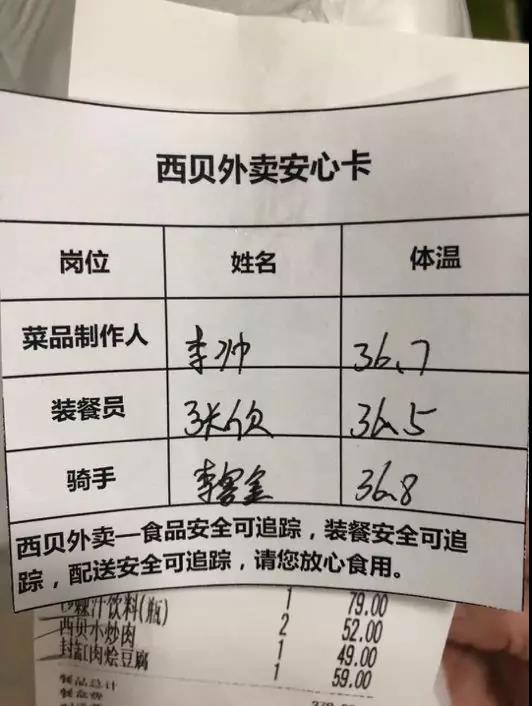 西贝外卖安心卡
岗位 姓名 体温
菜品制作人 李帅 36.7
装餐员 36.5
骑手 36.8
西贝外卖—食品安全可追踪，装餐安全可追
踪，配送安全可追踪，请您放心食用。
汁饮料(瓶) 1 79.00
西贝水炒肉 2 52.00
封缸肉烩豆腐 1 49.00
1 59.00
餐品总计
餐盒费